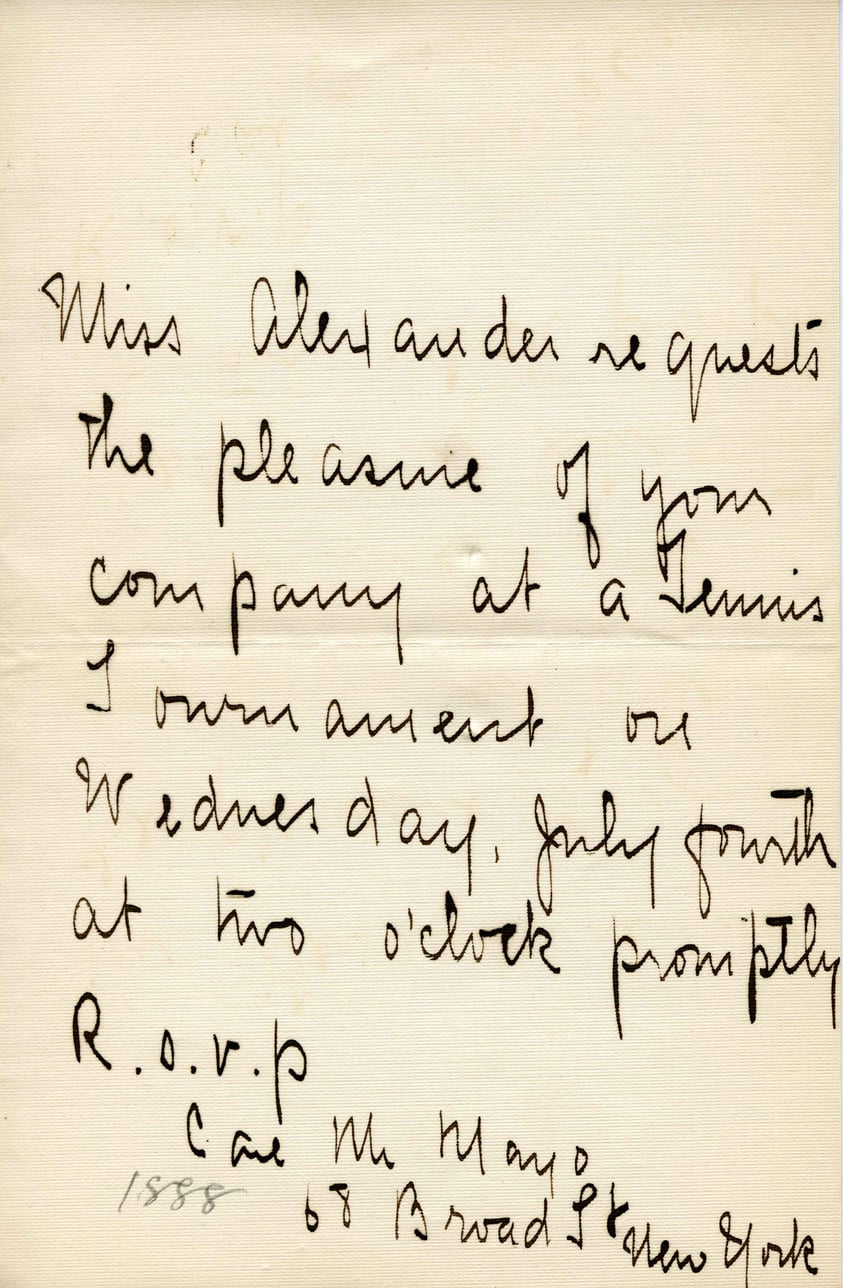 Miss Alexander requests
the pleasure of your
company at a Tennis
Tournament on
Wednesday, July fourth
at two o'clock promptly
R.s.v.p
Care Mr Mayo
1888
68 Broad St New York